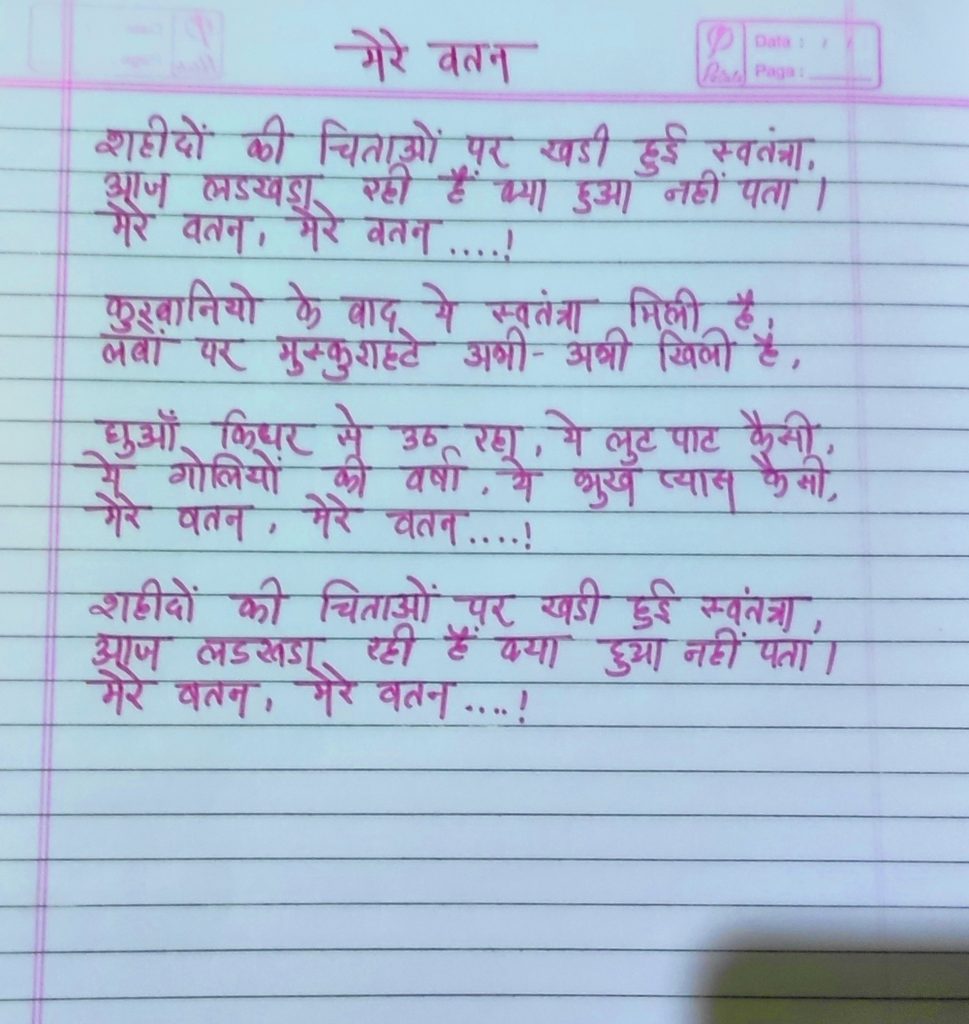 मेरे वतन
Data : / /
Page :
शहीदों की चिताओं पर खडी हुई स्वतंत्रा,
आज लडखडा रही हैं क्या हुआ नहीं पता।
मेरे वतन, मेरे वतन ....!
कुरबानियो के बाद ये स्वतंत्रा मिली है,
लबों पर मुस्कुराहटे अभी - अभी खिली है,
धुआँ किधर से उठ रहा, ये लुट पाट कैसी,
ये गोलियों की वर्षा, ये भुख प्यास कैसी,
मेरे वतन, मेरे वतन ....!
शहीदों की चिताओं पर खडी हुई स्वंतत्रा,
आज लडखडा रही हैं क्या हुआ नहीं पता।
मेरे वतन, मेरे वतन ....!